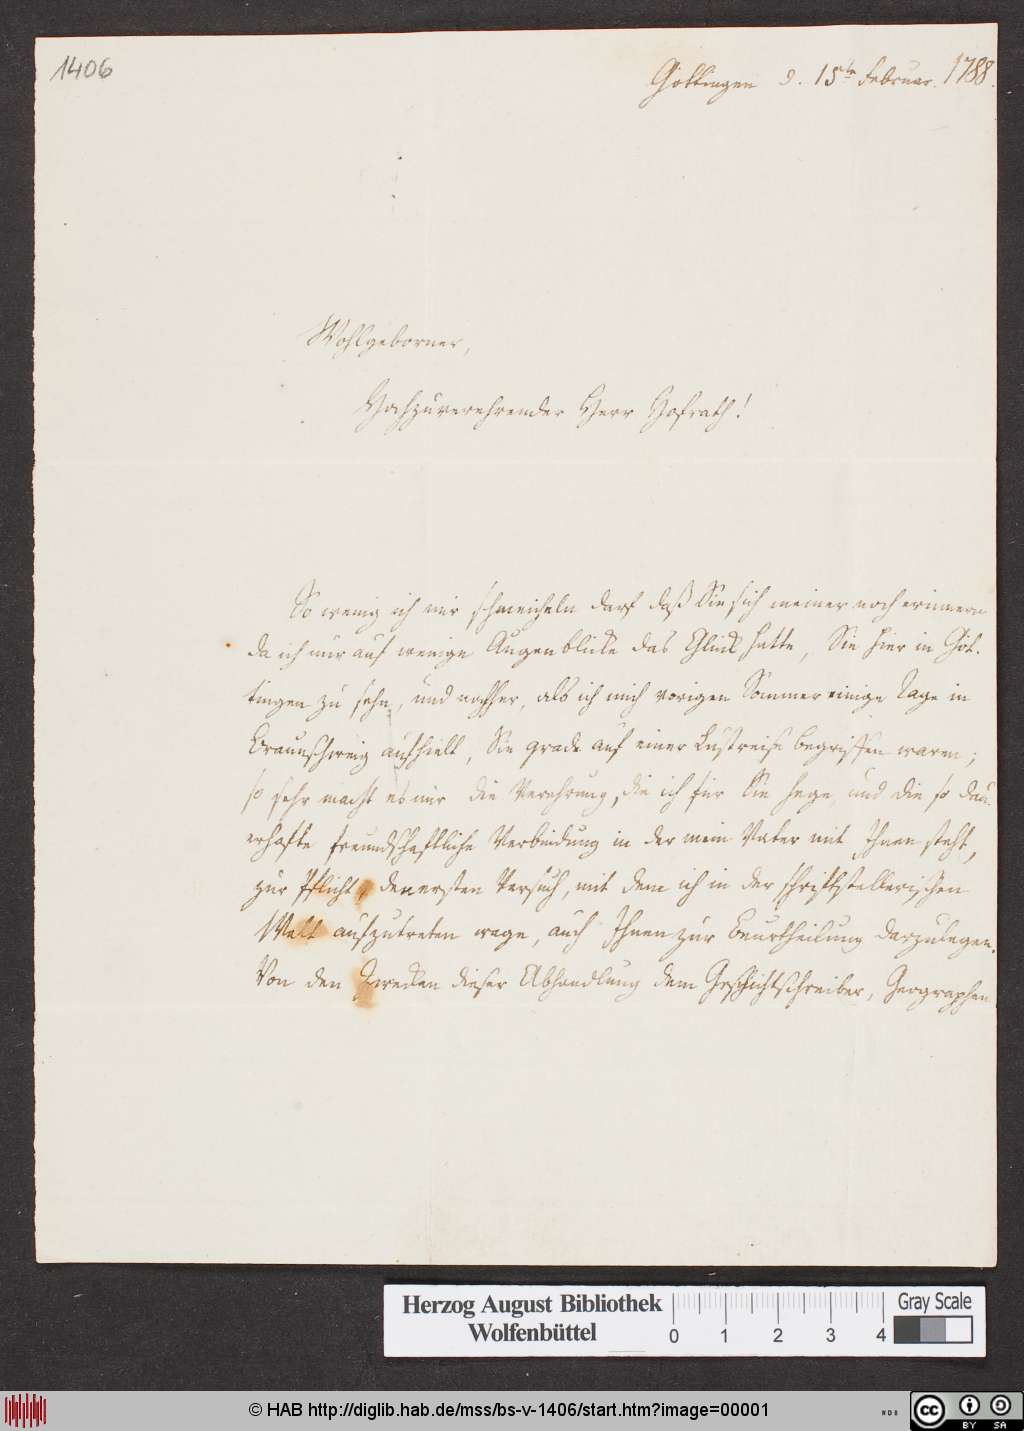 1406
Göttingen d. 15ten Februar. 1788.
Wohlgeborner,
Hochzuverehrender Herr Hofrath!
So wenig ich mir schmeicheln darf daß Sie sich meiner noch erinnern
da ich nur auf wenige Augenblicke das Glück hatte, Sie hier in Göt-
tingen zu sehn, und nachher, als ich mich vorigen Sommer einige Tage in
Braunschweig aufhielt, Sie grade auf einer Lustreise begriffen waren;
so sehr macht es mir die Verehrung, die ich für Sie hege, und die so dau-
erhafte freundschaftliche Verbindung in der mein Vater mit Ihnen steht,
zur Pflicht, den ersten Versuch, mit dem ich in der schriftstellerischen
Welt aufzutreten wage, auch Ihnen zur Beurtheilung darzulegen.
Von den Zwecken dieser Abhandlung dem Geschichtschreiber, Geographen
Herzog August Bibliothek
Wolfenbüttel
0 1 2 3 4
Gray Scale
© HAB http://diglib.hab.de/mss/bs-v-1406/start.htm?image=00001
cc BY SA